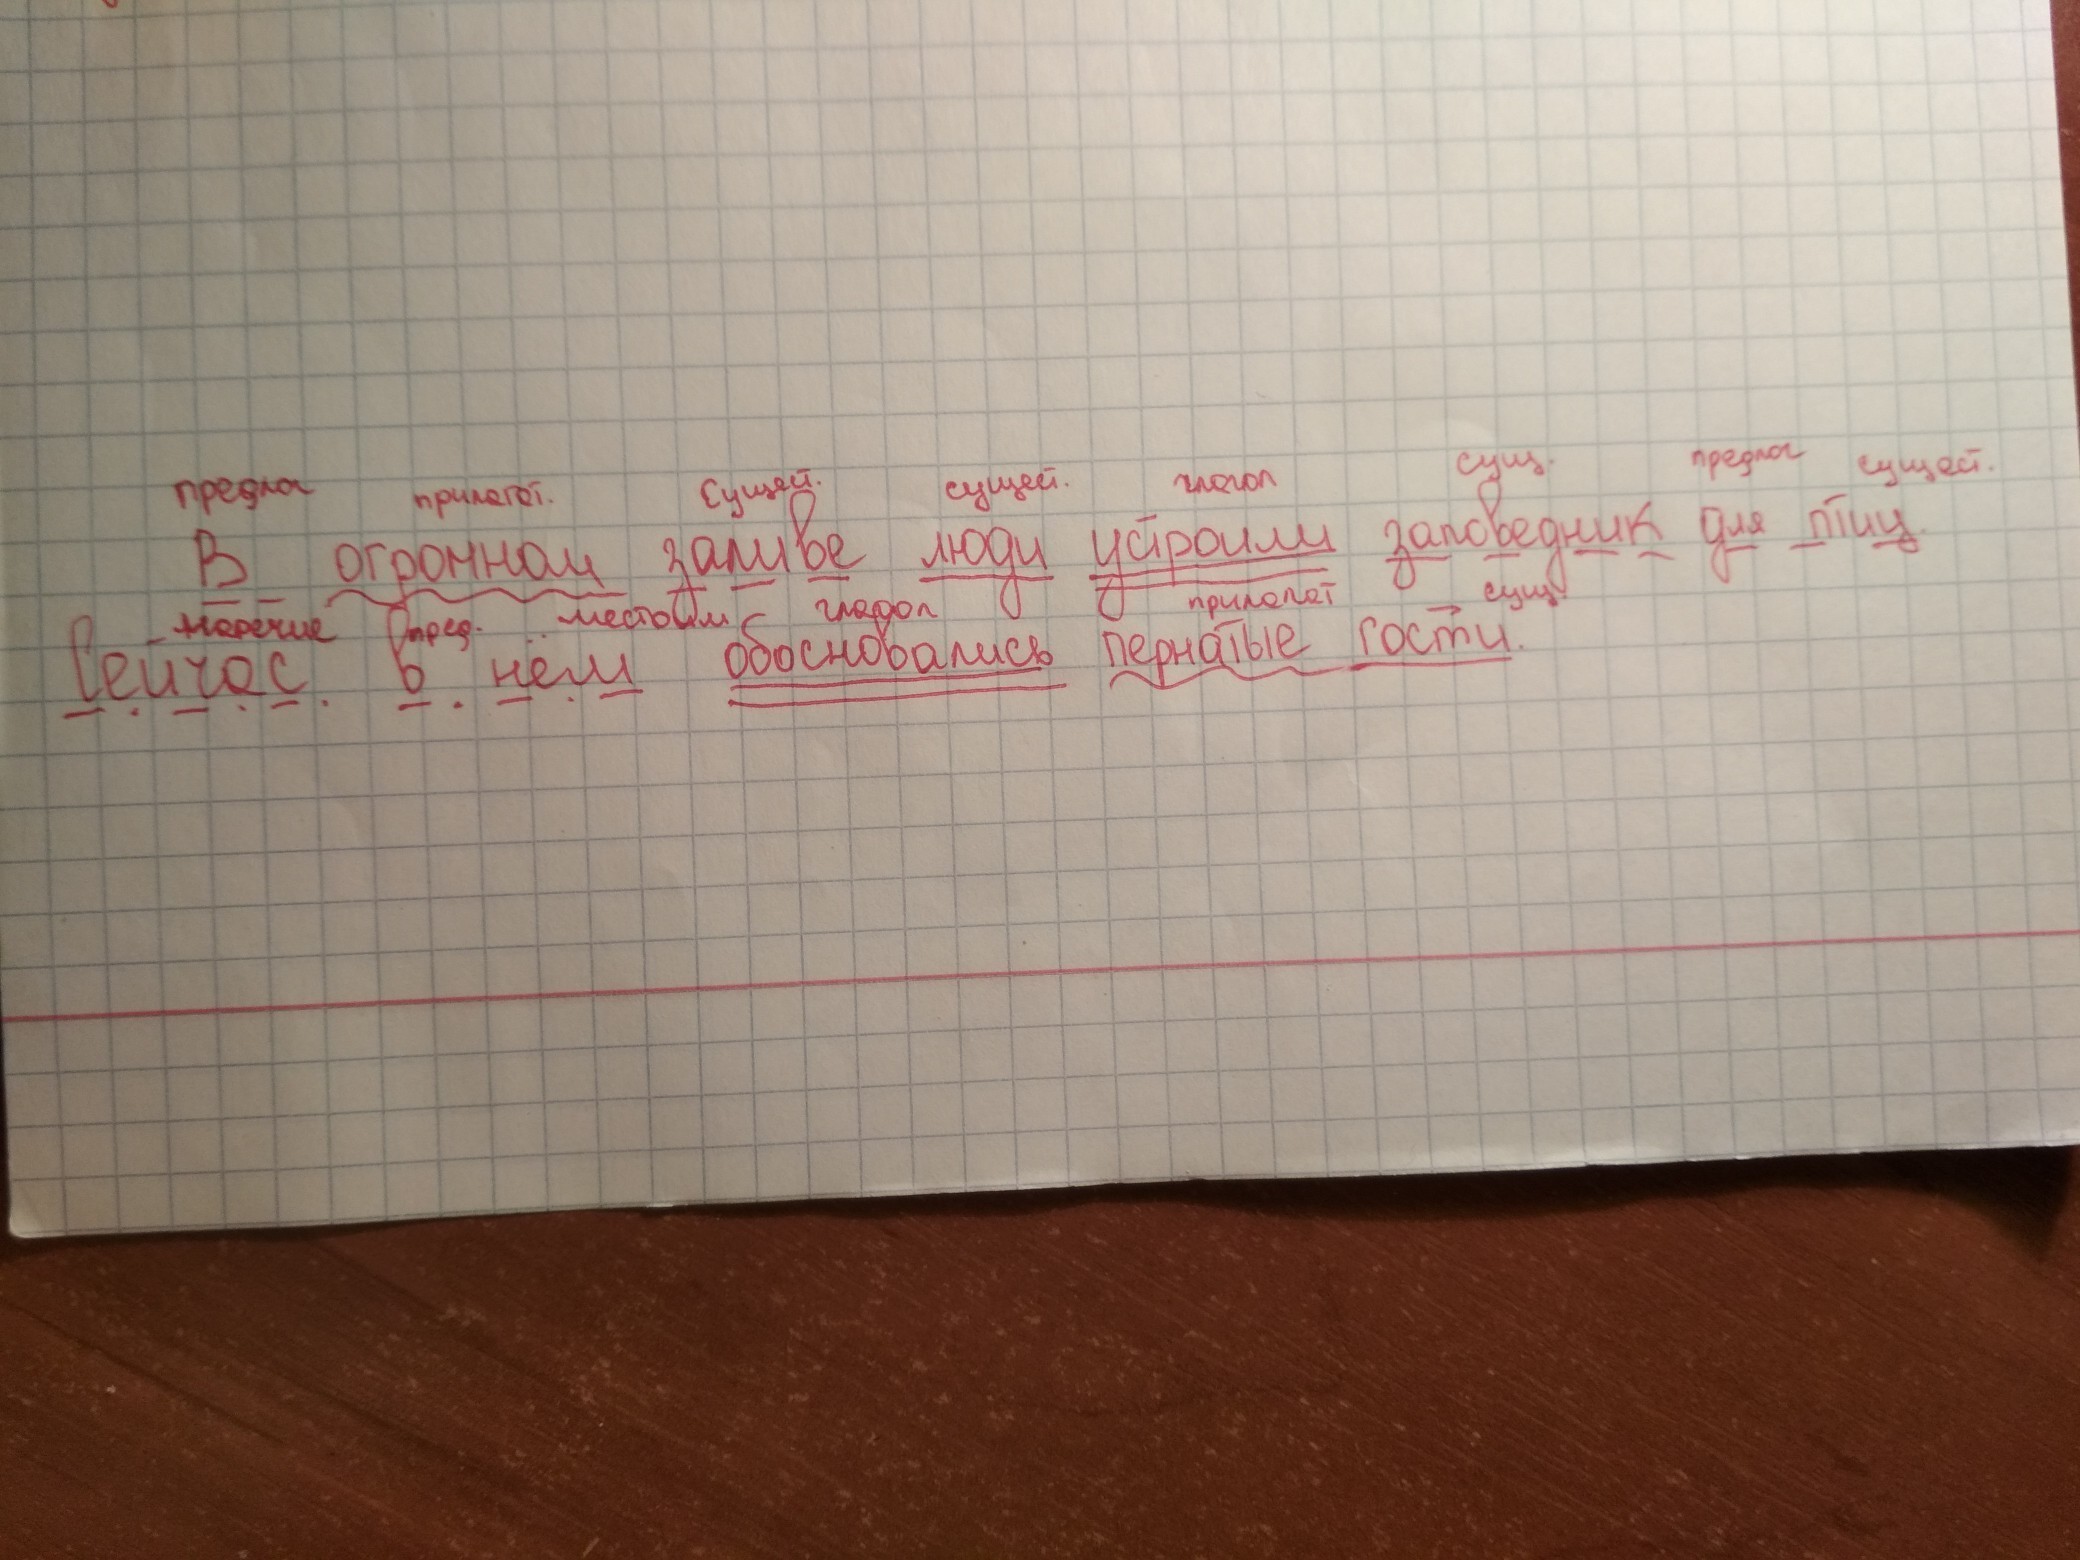 предлог прилагат. Сущей. сущей. глагол сущ. предлог сущест.
В огромном заливе люди устроили заповедник для птиц.
наречие пред. местоим глагол прилагат сущ
Сейчас в нём обосновались пернатые гости.